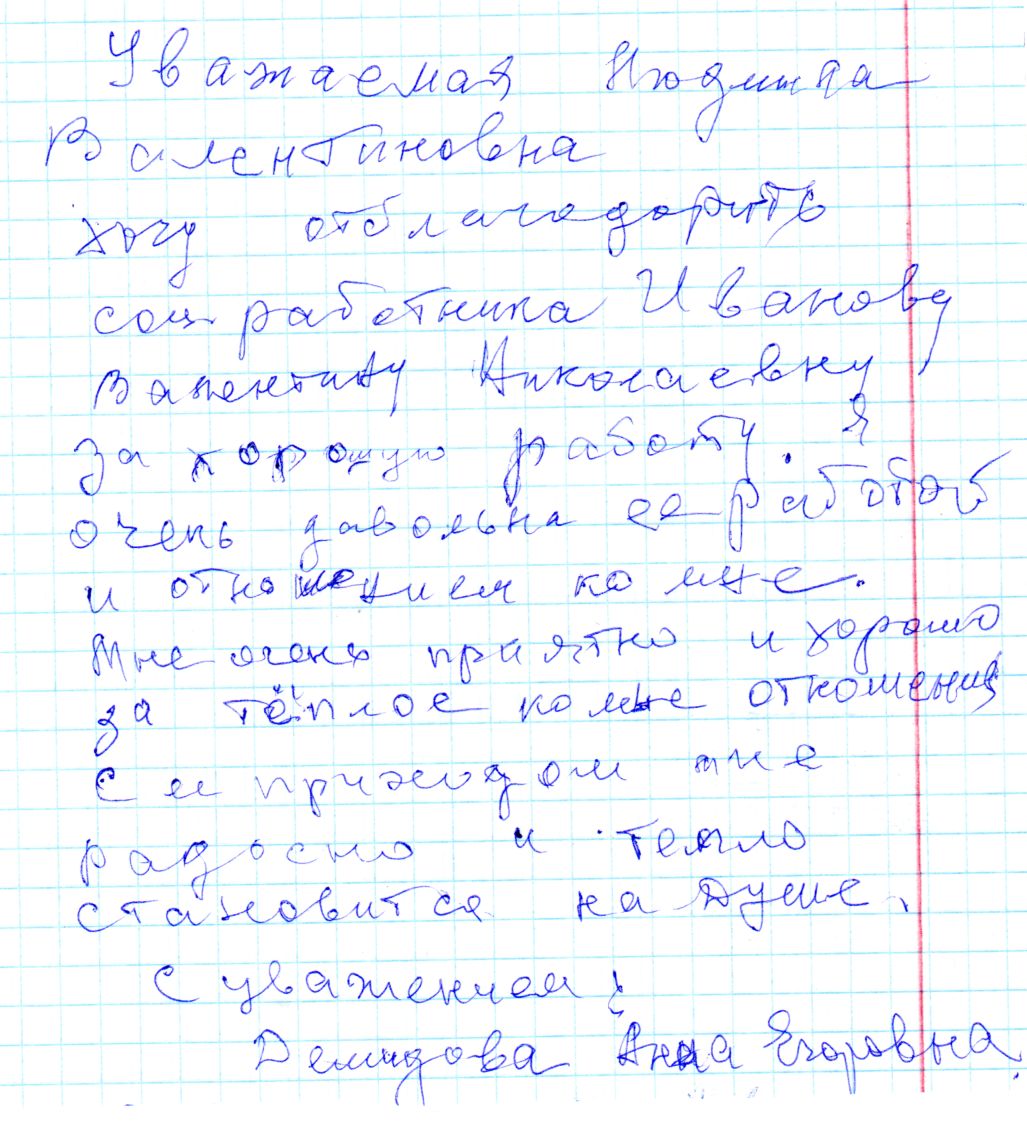 Уважаемая Людмила
Валентиновна
хочу отблагодорить
соц. работника Иванову
Валентину Николаевну
за хорошую работу. Я
очень давольна ее работой
и отношением ко мне.
Мне очень приятно и хорошо
за тёплое ко мне отношения
С ее приходом мне
радосно и тепло
становится на душе.
С уважением;
Демидова Анна Егоровна.